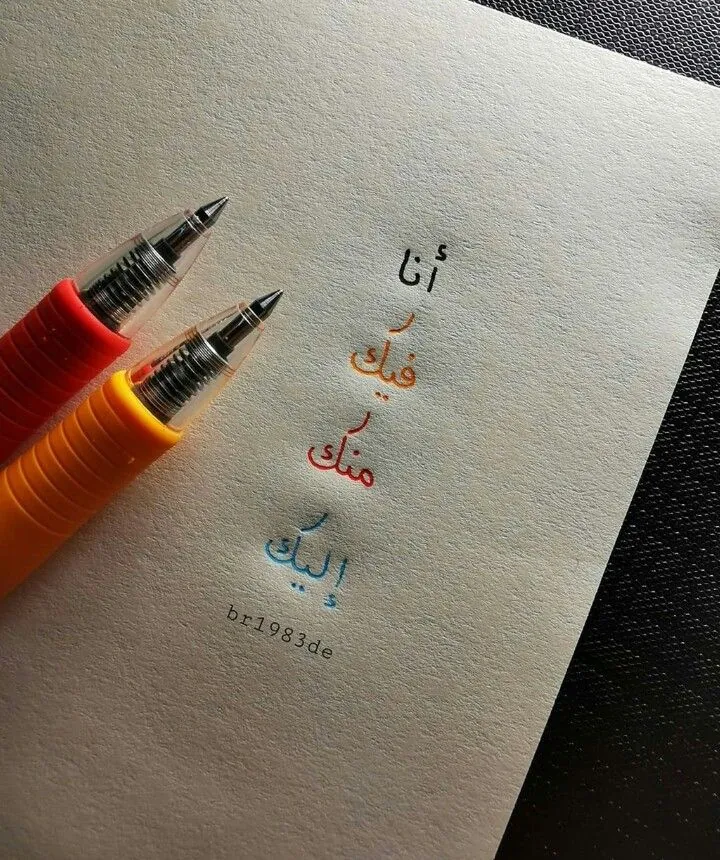 أنا
فيك
منك
إليك
br1983de